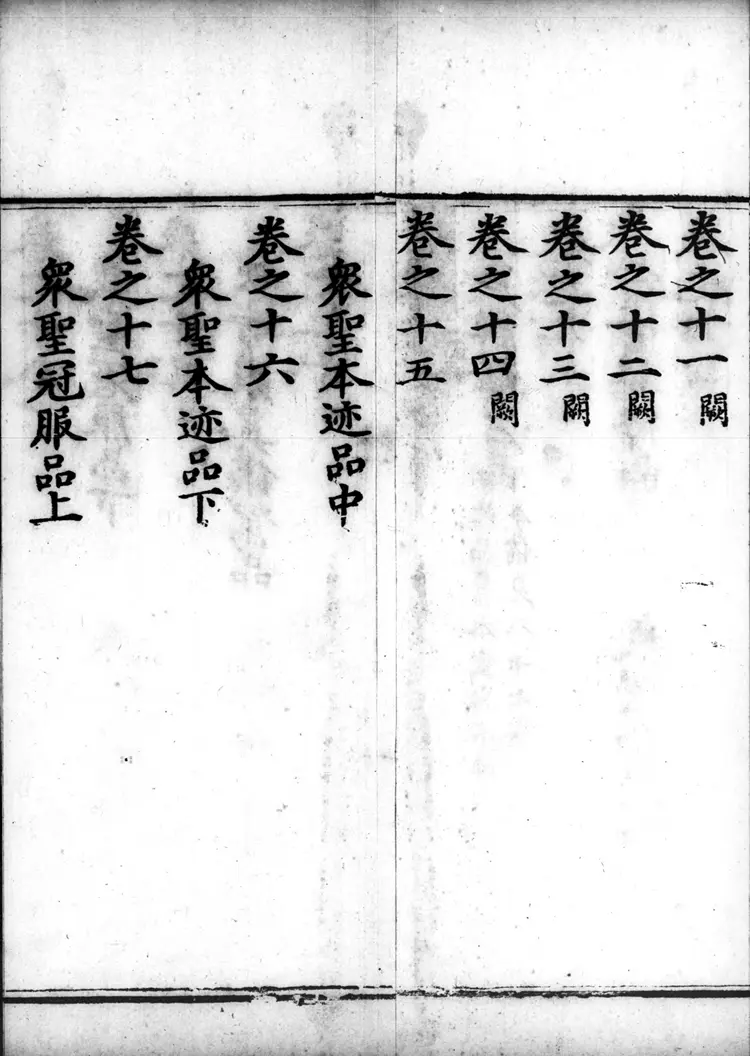 卷之十一闕
卷之十二闕
卷之十三闕
卷之十四闕
卷之十五
衆聖本迹品中
卷之十六
衆聖本迹品下
卷之十七
衆聖冠服品上